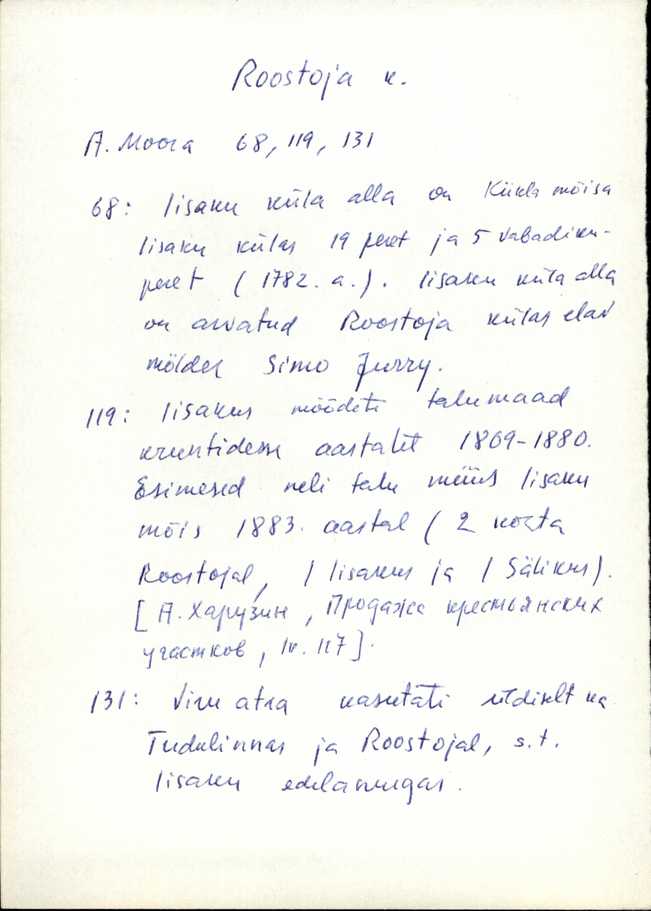 Roostoja k.
A. Moora 68, 119, 131
68: Iisaku küla alla on Kiikla mõisa
Iisaku külas 19 peret ja 5 vabadiku-
peret (1782. a.). Iisaku küla alla
on arvatud Roostoja külas elav
mölder Simo Jurry.
119: Iisakus mõõdeti talumaad
kruntidesse aastatel 1869-1880.
Esimesed neli talu müüs Iisaku
mõis 1883. aastal (2 kohta
Roostojal, 1 Iisakus ja 1 Sälikus).
[А. Харузин, Продажа крестьянских
участков, lk. 117].
131: Viru atra kasutati üldiselt ka
Tudulinnas ja Roostojal, s.t.
Iisaku edelanurgas.